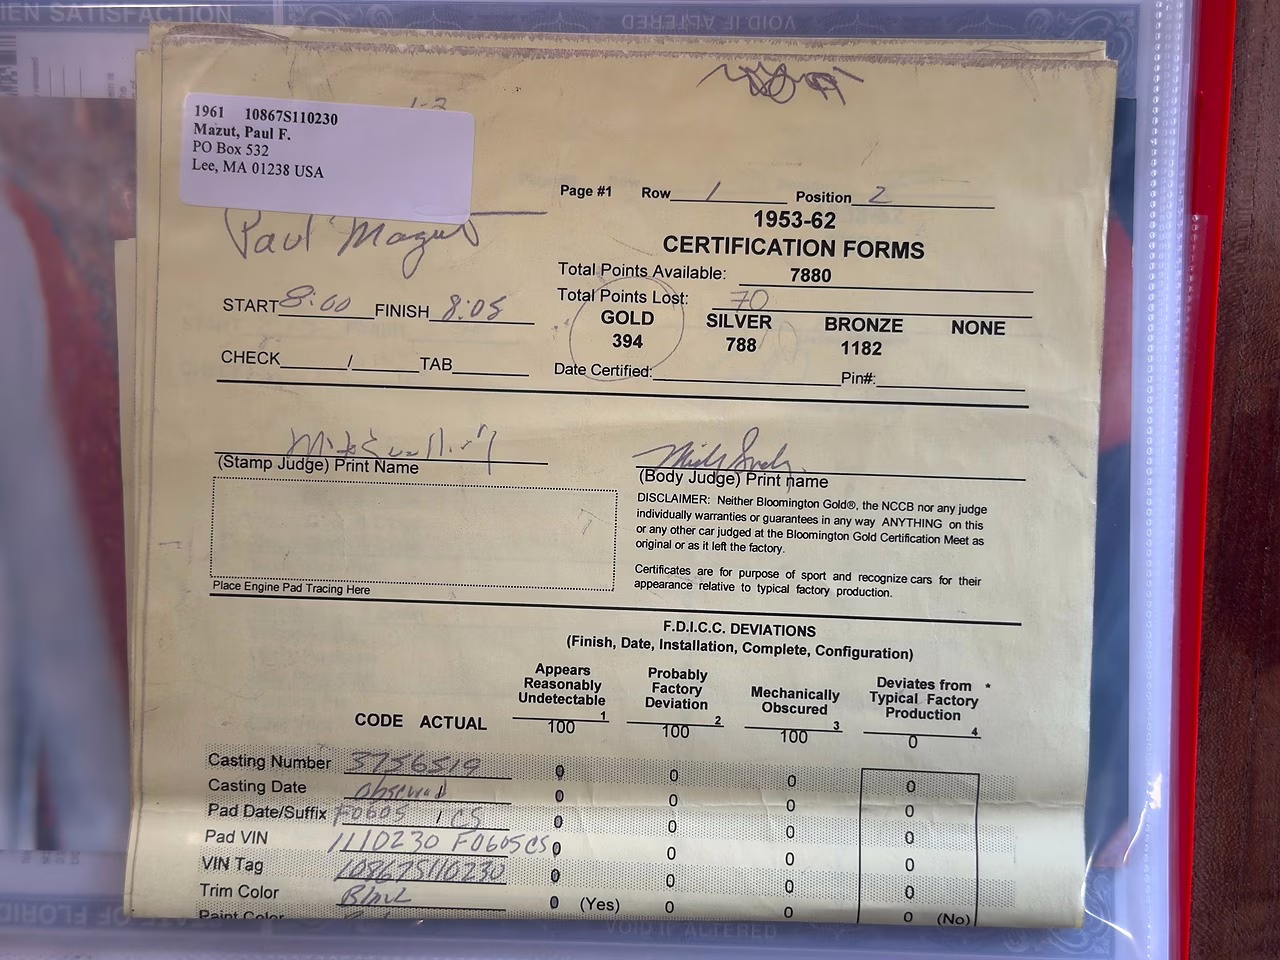 IEN SATISFACTION
VOID IF ALTERED
1961 10867S110230
Mazut, Paul F.
PO Box 532
Lee, MA 01238 USA
Paul Mazut
Page #1 Row 1 Position 2
1953-62
CERTIFICATION FORMS
Total Points Available: 7880
Total Points Lost: 70
GOLD SILVER BRONZE NONE
394 788 1182
Date Certified: Pin#:
START 8:00 FINISH 8:05
CHECK / TAB
(Stamp Judge) Print Name
(Body Judge) Print name
DISCLAIMER: Neither Bloomington Gold®, the NCCB nor any judge
individually warranties or guarantees in any way ANYTHING on this
or any other car judged at the Bloomington Gold Certification Meet as
original or as it left the factory.
Certificates are for purpose of sport and recognize cars for their
appearance relative to typical factory production.
Place Engine Pad Tracing Here
F.D.I.C.C. DEVIATIONS
(Finish, Date, Installation, Complete, Configuration)
Appears Reasonably Undetectable 1
Probably Factory Deviation 2
Mechanically Obscured 3
Deviates from * Typical Factory Production 4
CODE ACTUAL 100 100 100 0
Casting Number 3756519 0 0 0 0
Casting Date obscured 0 0 0 0
Pad Date/Suffix F0605 / CS 0 0 0 0
Pad VIN 1110230 F0605CS 0 0 0 0
VIN Tag 10867S110230 0 0 0 0
Trim Color Black 0 (Yes) 0 0 0 (No)
Paint Color
OF FLORID
VOID IF ALTERED